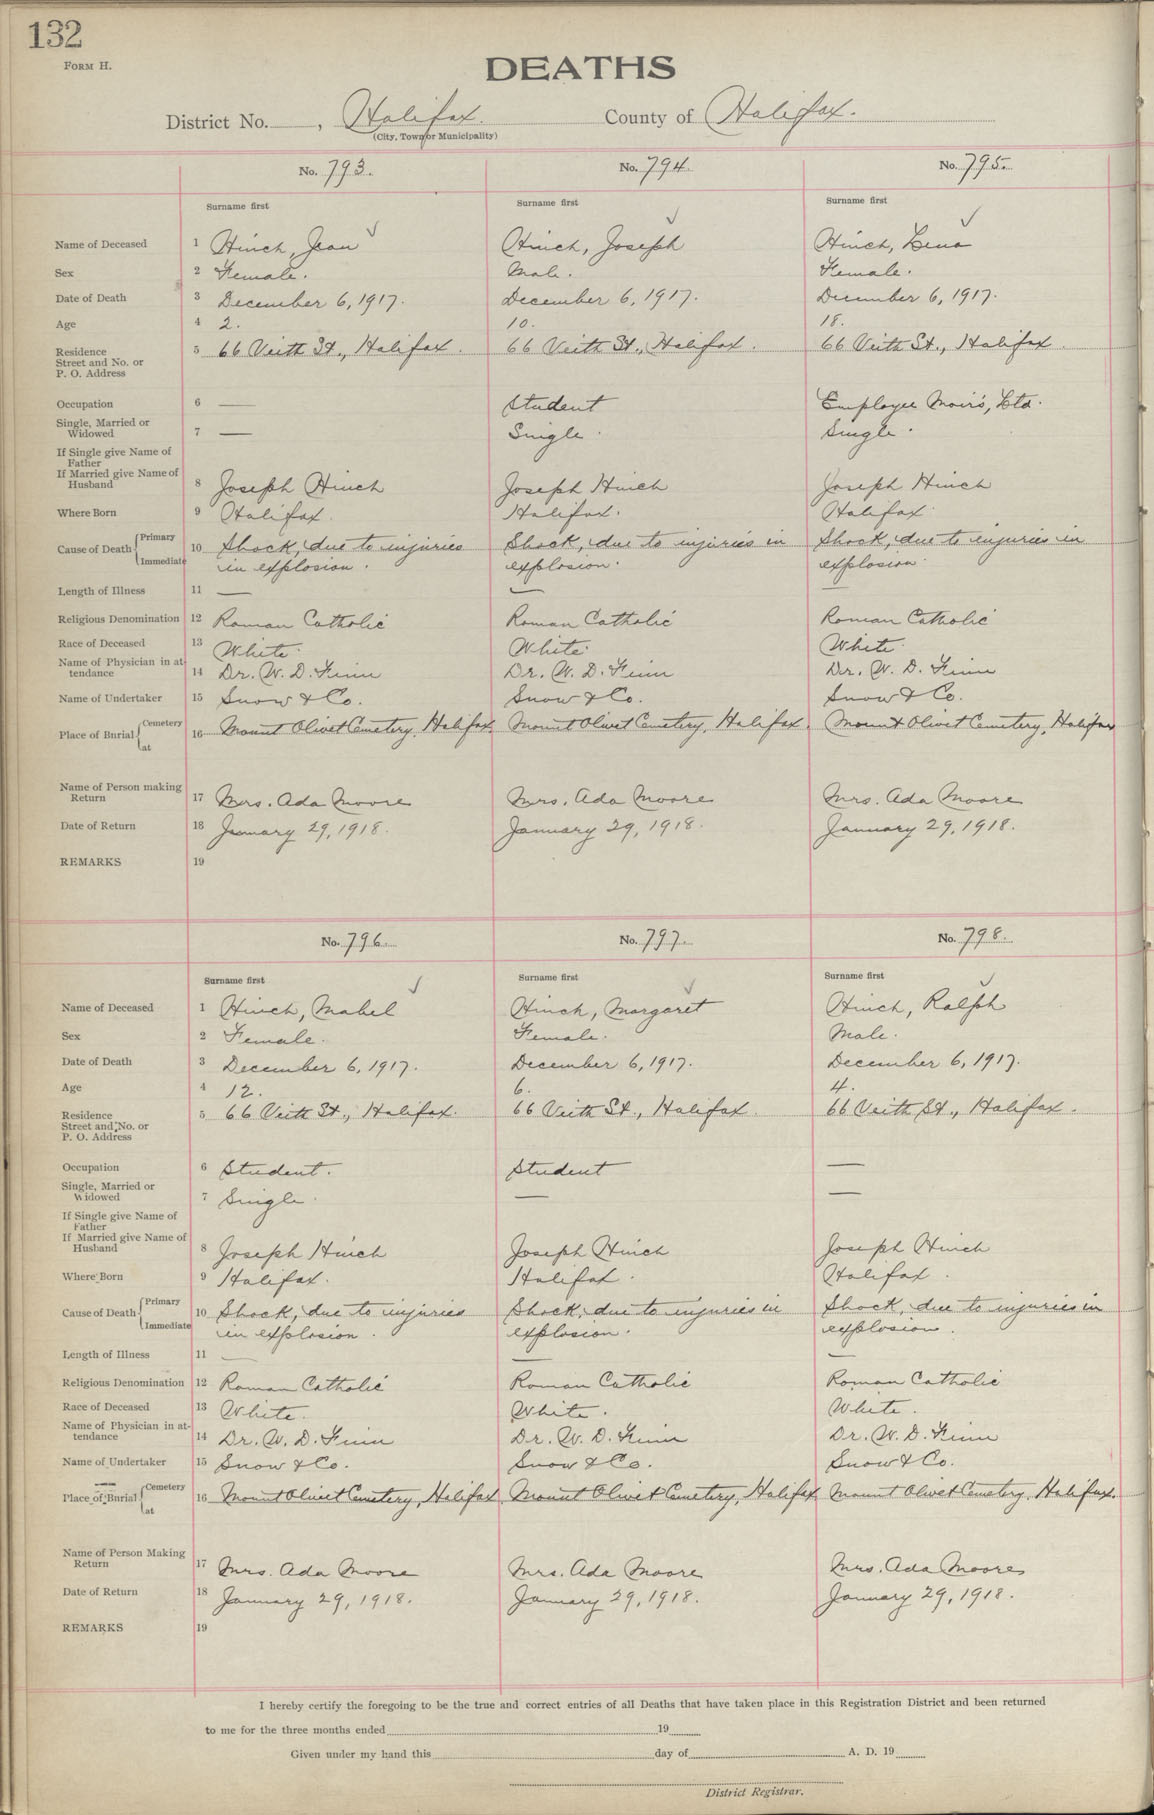 132
FORM H.
DEATHS
District No. , Halifax. County of Halifax.
(City, Town or Municipality)
No. 793. No. 794. No. 795.
Surname first Surname first Surname first
Name of Deceased 1 Hinch, Jean Hinch, Joseph Hinch, Lena
Sex 2 Female. Male. Female.
Date of Death 3 December 6, 1917. December 6, 1917. December 6, 1917.
Age 4 2. 10. 18.
Residence 5 66 Veith St., Halifax. 66 Veith St., Halifax. 66 Veith St., Halifax
Street and No. or
P. O. Address
Occupation 6 — Student Employee Moir's, Ltd.
Single, Married or
Widowed 7 — Single. Single.
If Single give Name of
Father
If Married give Name of
Husband 8 Joseph Hinch Joseph Hinch Joseph Hinch
Where Born 9 Halifax. Halifax. Halifax.
Cause of Death { Primary
Immediate 10 Shock, due to injuries Shock, due to injuries in Shock, due to injuries in
in explosion. explosion. explosion.
Length of Illness 11 — — —
Religious Denomination 12 Roman Catholic Roman Catholic Roman Catholic
Race of Deceased 13 White. White. White.
Name of Physician in at-
tendance 14 Dr. W. D. Finn Dr. W. D. Finn Dr. W. D. Finn
Name of Undertaker 15 Snow & Co. Snow & Co. Snow & Co.
Place of Burial { Cemetery
at 16 Mount Olivet Cemetery, Halifax. Mount Olivet Cemetery, Halifax. Mount Olivet Cemetery, Halifax
Name of Person making
Return 17 Mrs. Ada Moore Mrs. Ada Moore Mrs. Ada Moore
Date of Return 18 January 29, 1918. January 29, 1918. January 29, 1918.
REMARKS 19
No. 796. No. 797. No. 798.
Surname first Surname first Surname first
Name of Deceased 1 Hinch, Mabel Hinch, Margaret Hinch, Ralph
Sex 2 Female. Female. Male.
Date of Death 3 December 6, 1917. December 6, 1917. December 6, 1917.
Age 4 12. 6. 4.
Residence 5 66 Veith St., Halifax. 66 Veith St., Halifax. 66 Veith St., Halifax.
Street and No. or
P. O. Address
Occupation 6 Student. Student —
Single, Married or
Widowed 7 Single. — —
If Single give Name of
Father
If Married give Name of
Husband 8 Joseph Hinch Joseph Hinch Joseph Hinch
Where Born 9 Halifax. Halifax. Halifax.
Cause of Death { Primary
Immediate 10 Shock, due to injuries Shock, due to injuries in Shock, due to injuries in
in explosion. explosion. explosion.
Length of Illness 11 — — —
Religious Denomination 12 Roman Catholic Roman Catholic Roman Catholic
Race of Deceased 13 White. White. White.
Name of Physician in at-
tendance 14 Dr. W. D. Finn Dr. W. D. Finn Dr. W. D. Finn
Name of Undertaker 15 Snow & Co. Snow & Co. Snow & Co.
Place of Burial { Cemetery
at 16 Mount Olivet Cemetery, Halifax Mount Olivet Cemetery, Halifax Mount Olivet Cemetery, Halifax.
Name of Person Making
Return 17 Mrs. Ada Moore Mrs. Ada Moore Mrs. Ada Moore
Date of Return 18 January 29, 1918. January 29, 1918. January 29, 1918.
REMARKS 19
I hereby certify the foregoing to be the true and correct entries of all Deaths that have taken place in this Registration District and been returned
to me for the three months ended 19
Given under my hand this day of A. D. 19
District Registrar.